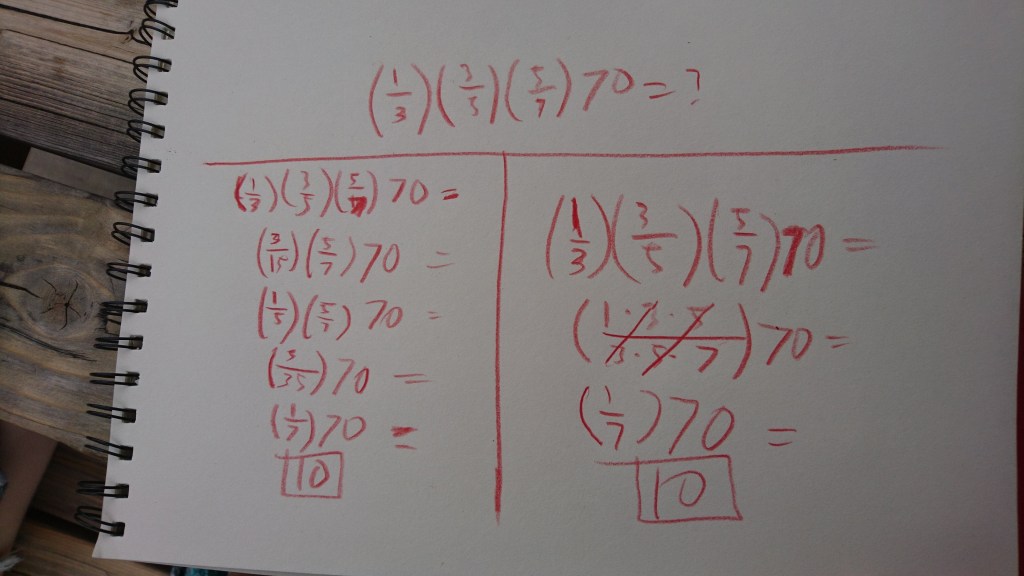 (1/3)(3/5)(5/7)70=?
(1/3)(3/5)(5/7)70=
(3/15)(5/7)70=
(1/5)(5/7)70=
(5/35)70=
(1/7)70=
10
(1/3)(3/5)(5/7)70=
(1·3·5/3·5·7)70=
(1/7)70=
10